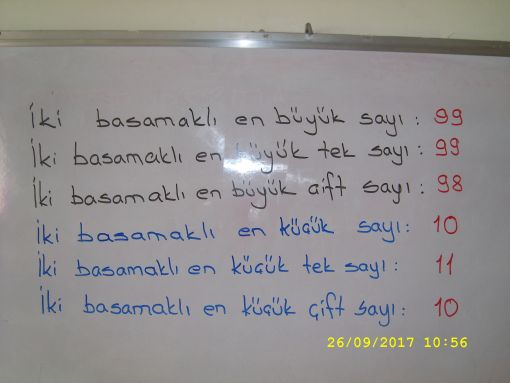 İki basamaklı en büyük sayı: 99
İki basamaklı en büyük tek sayı: 99
İki basamaklı en büyük çift sayı: 98
İki basamaklı en küçük sayı: 10
İki basamaklı en küçük tek sayı: 11
İki basamaklı en küçük çift sayı: 10
26/09/2017 10:56